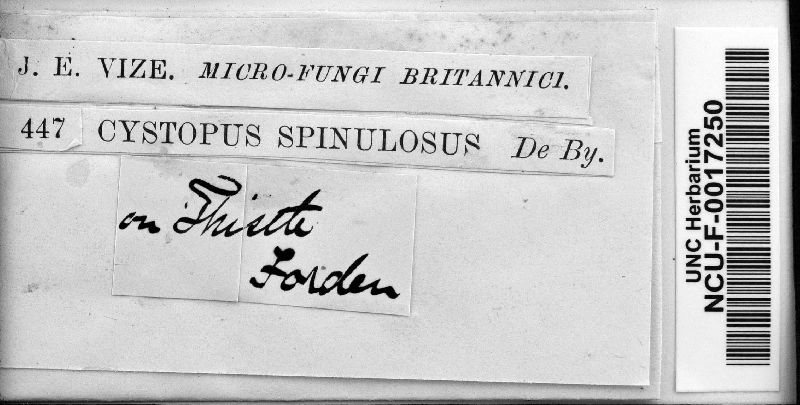 J. E. VIZE. MICRO-FUNGI BRITANNICI.
447 CYSTOPUS SPINULOSUS De By.
on Thistle
Forden
UNC Herbarium
NCU-F-0017250